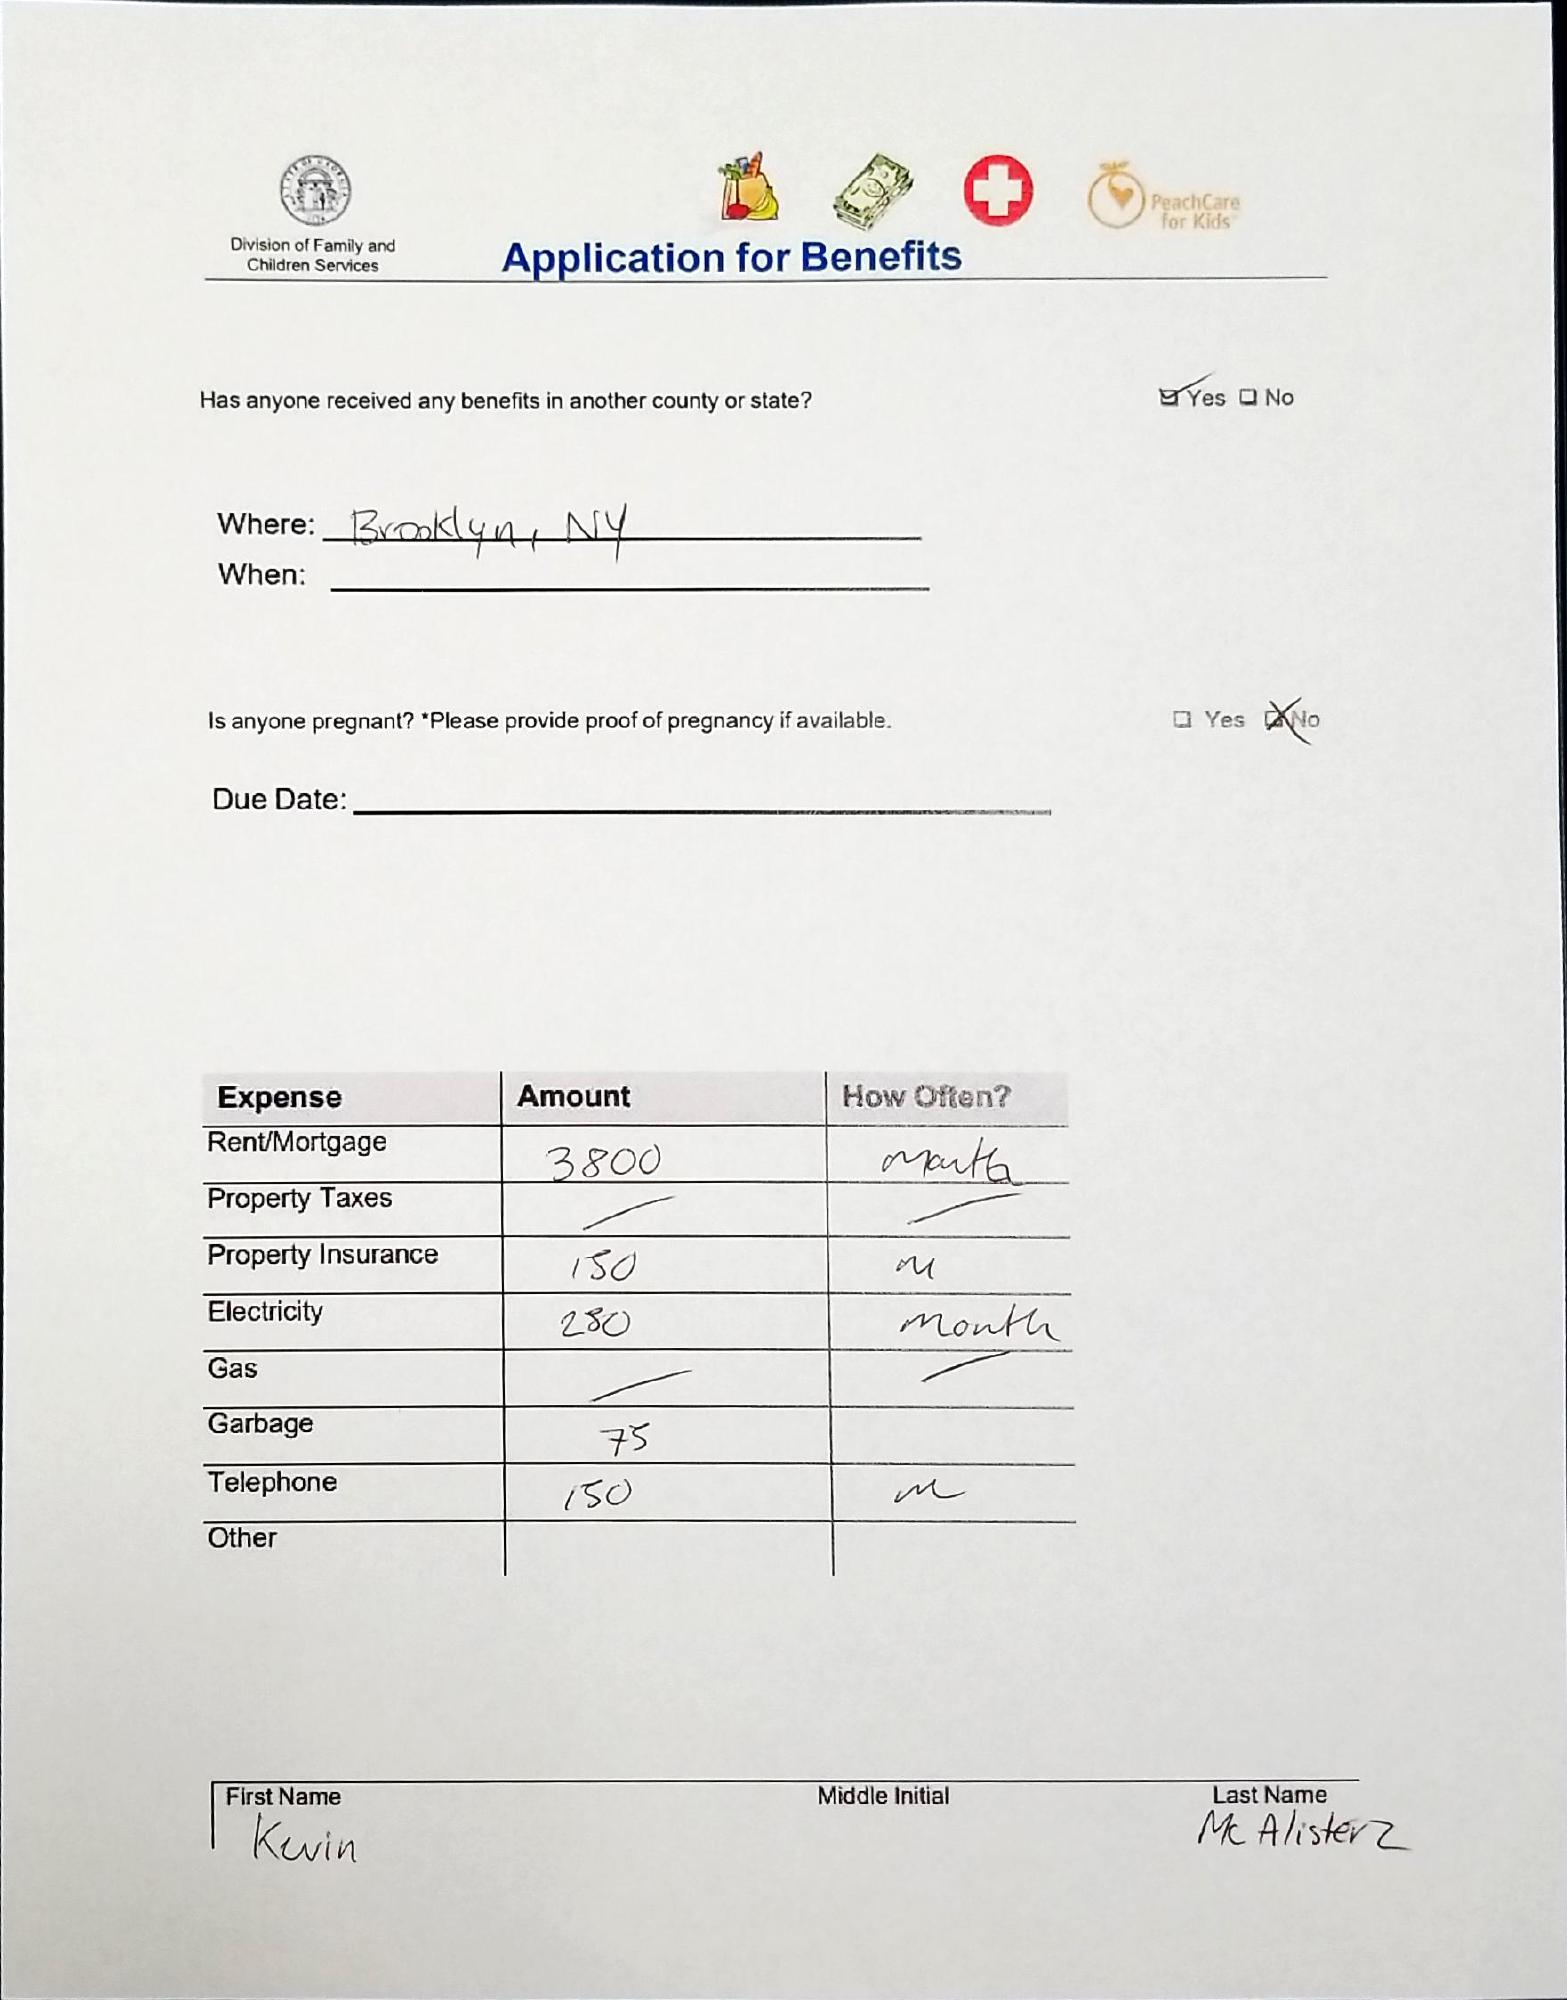 STATE OF GEORGIA
1776
Division of Family and
Children Services
Application for Benefits
PeachCare
for Kids
Has anyone received any benefits in another county or state? Yes No
Where: Brooklyn, NY
When:
Is anyone pregnant? *Please provide proof of pregnancy if available. Yes No
Due Date:
Expense Amount How Often?
Rent/Mortgage 3800 month
Property Taxes
Property Insurance 150 m
Electricity 280 month
Gas
Garbage 75
Telephone 150 m
Other
First Name Middle Initial Last Name
Kevin McAlisterz